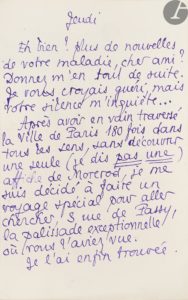 Jeudi
Eh bien? plus de nouvelles
de votre maladie, cher ami?
Donnez m'en tout de suite.
Je vous croyais guéri, mais
votre silence m'inquiète...
Après avoir en vain traversé
la ville de Paris 180 fois dans
tous les sens, sans découvrir
une seule (je dis pas une)
affiche de Morerod, je me
suis décidé à faire un
voyage spécial pour aller
chercher, 3 rue de Passy,
la palissade exceptionnelle
où vous l'aviez vue.
Je l'ai enfin trouvée